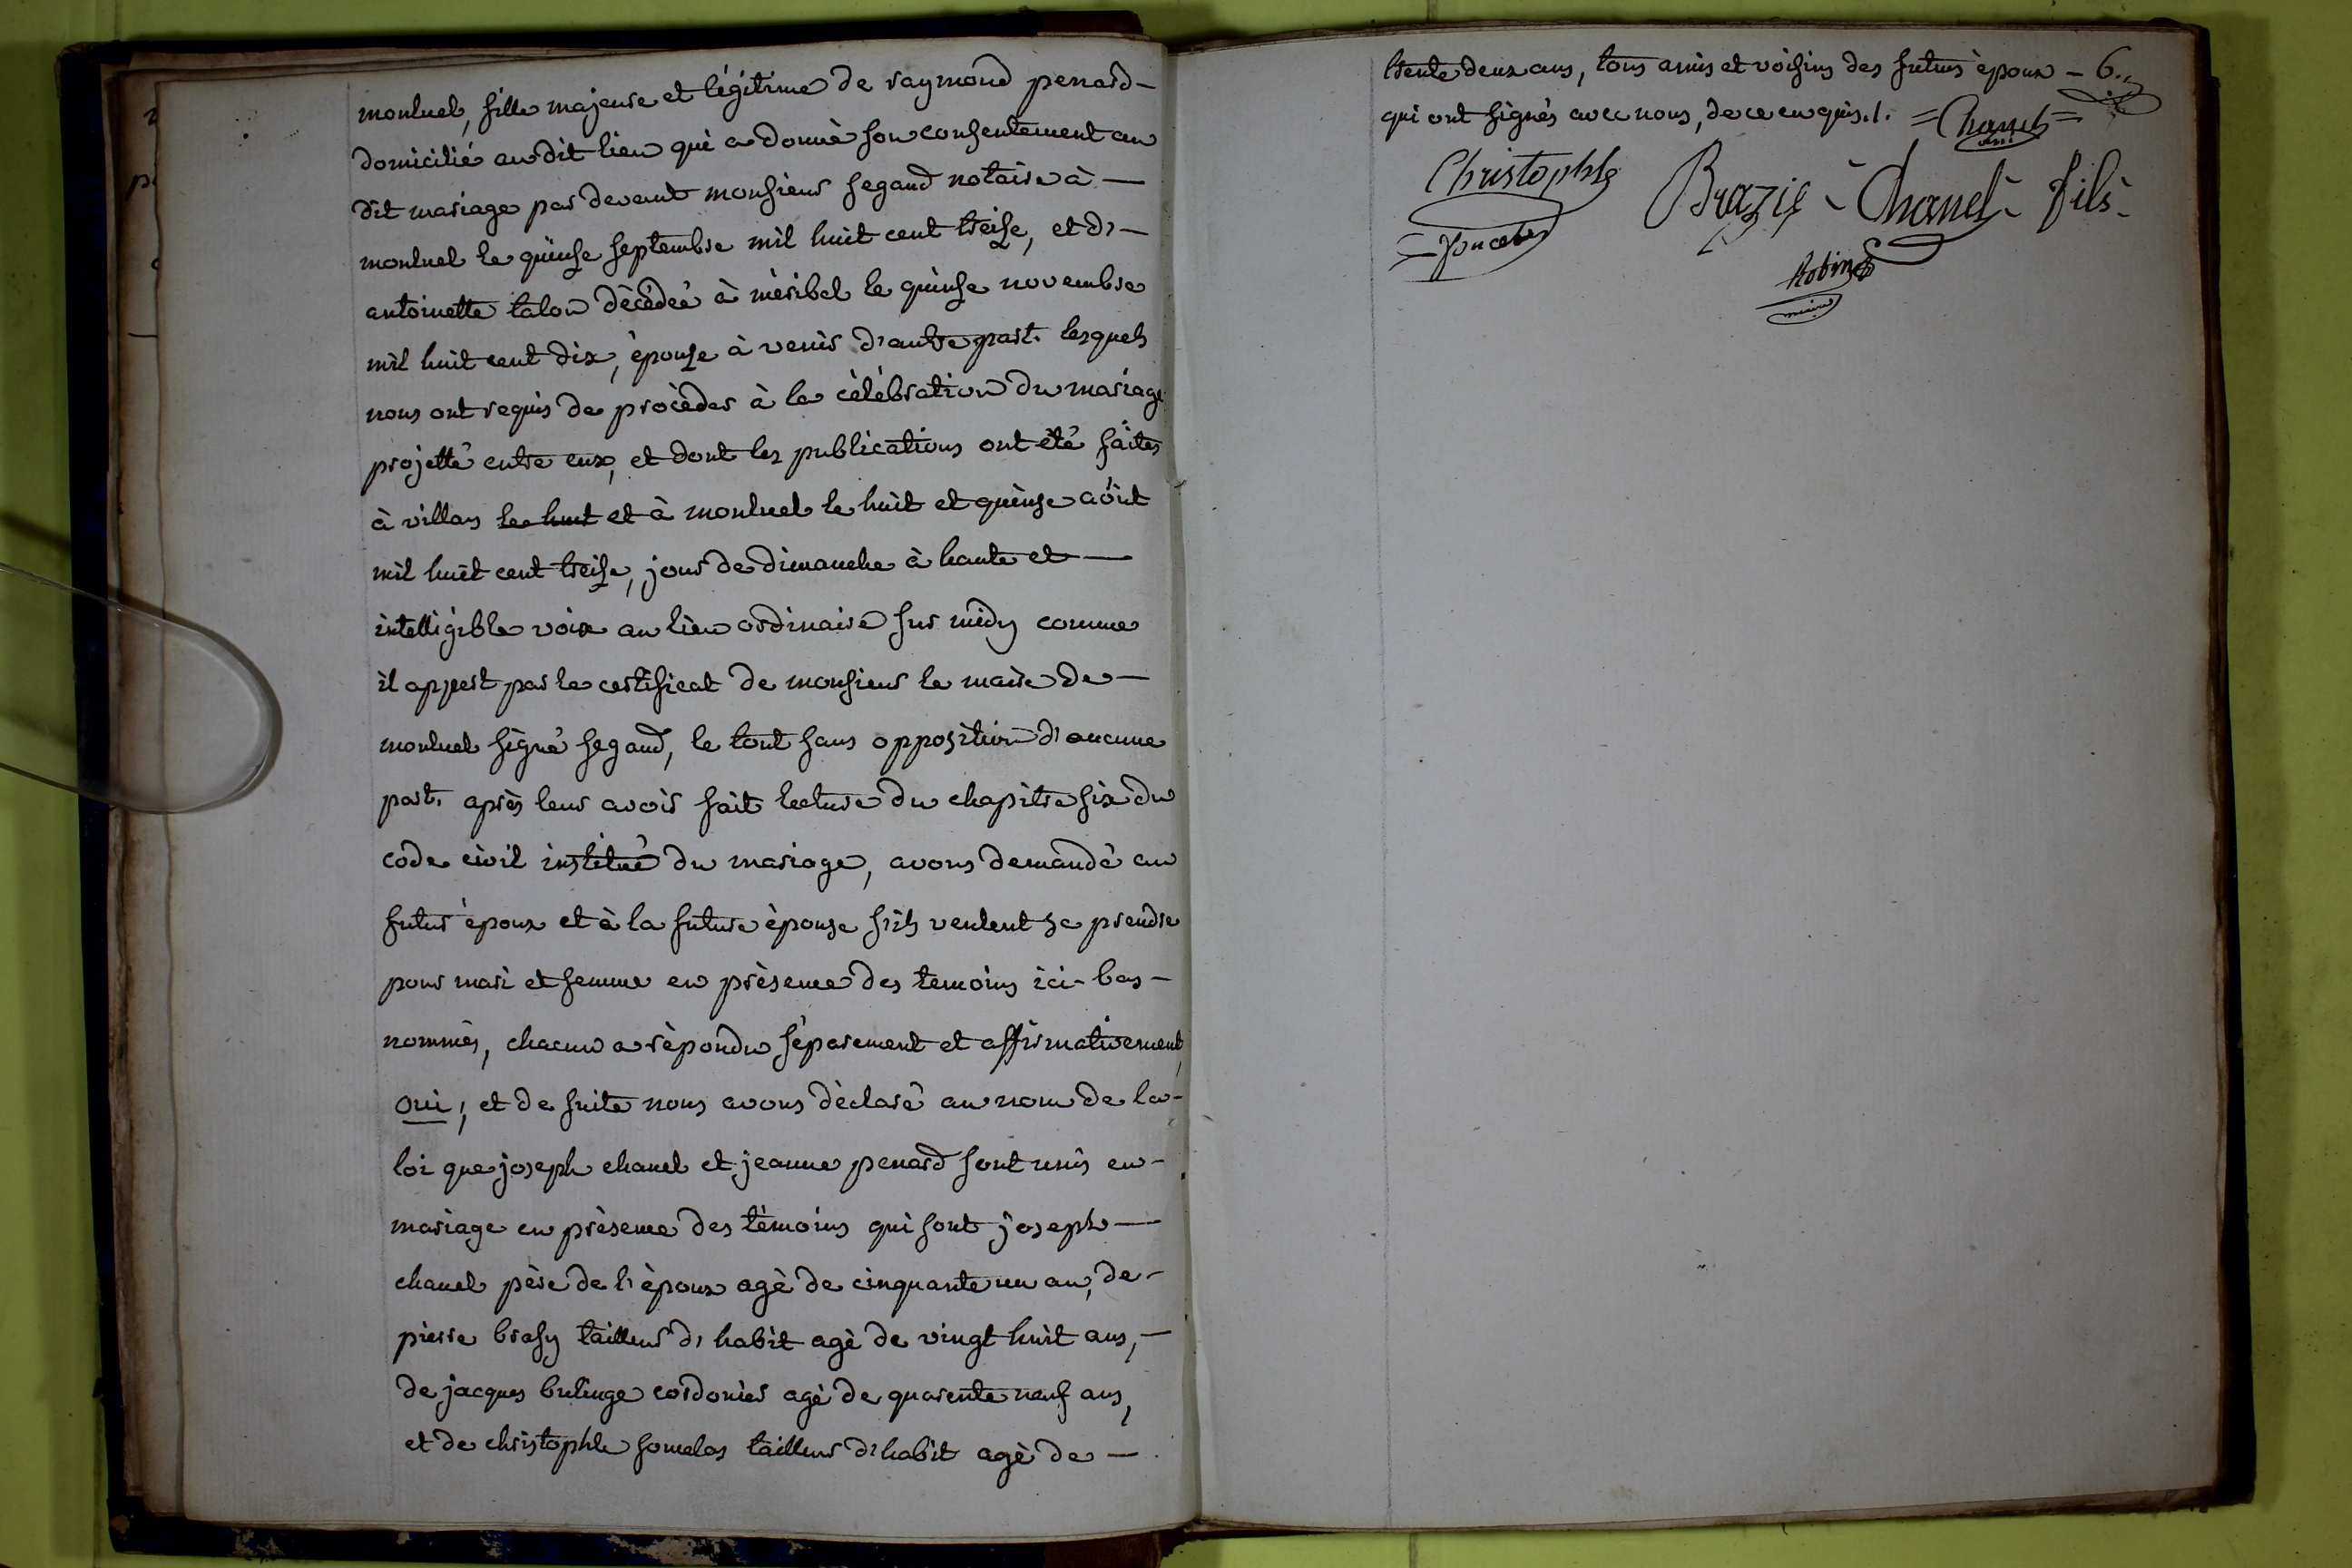 montuel, fille majeure et légitime de raymond penard –
domicilié audit lieu qui a donnè son consentement au
dit mariage par devant monsieur segaud notaire à —
montuel le quinse septembre mil huit cent treise, et d' –
antoinette talon dècèdeé à mèribel le quinse novembre
mil huit cent dix, èpouse à venir d'autre part. lesquels
nous ont requis de procèder à la cèlèbration du mariage
projetté entre eux, et dont les publications ont été faites
à villars le huit et à montuel le huit et quinse aóut
mil huit cent treise, jour de dimanche à haute et —
intelligible voix au lieu ordinaire sur midy comme
il appert par le certificat de monsieur le maire de —
montuel signé segaud, le tout sans opposition d'aucune
part. après leur avoir fait lecture du chapitre six du
code civil institué du mariage, avons demandé au
futur époux et à la future èpouse s'ils veulent se prendre
pour mari et femme en prèsence des temoins ici-bas –
nommés, chacun a rèpondu séparement et affirmativement,
oui; et de suite nous avons dèclaré au nom de la –
loi que joseph chanel et jeanne penard sont unis en –
mariage en prèsence des tèmoins qui sont joseph —
chanel père de l'èpoux agè de cinquante un an, de –
pierre brasy tailleur d'habit agè de vingt huit ans, –
de jacques bulinge cordonier agè de quarente neuf ans,
et de christophle somelas tailleur d'habit agè de —
trente deux ans, tous amis et voisins des futurs èpoux – 6.
qui ont signés avec nous, de ce enquis./. = Chanel =
Christophle Brazié - Chanel - fils -
Robin
maire